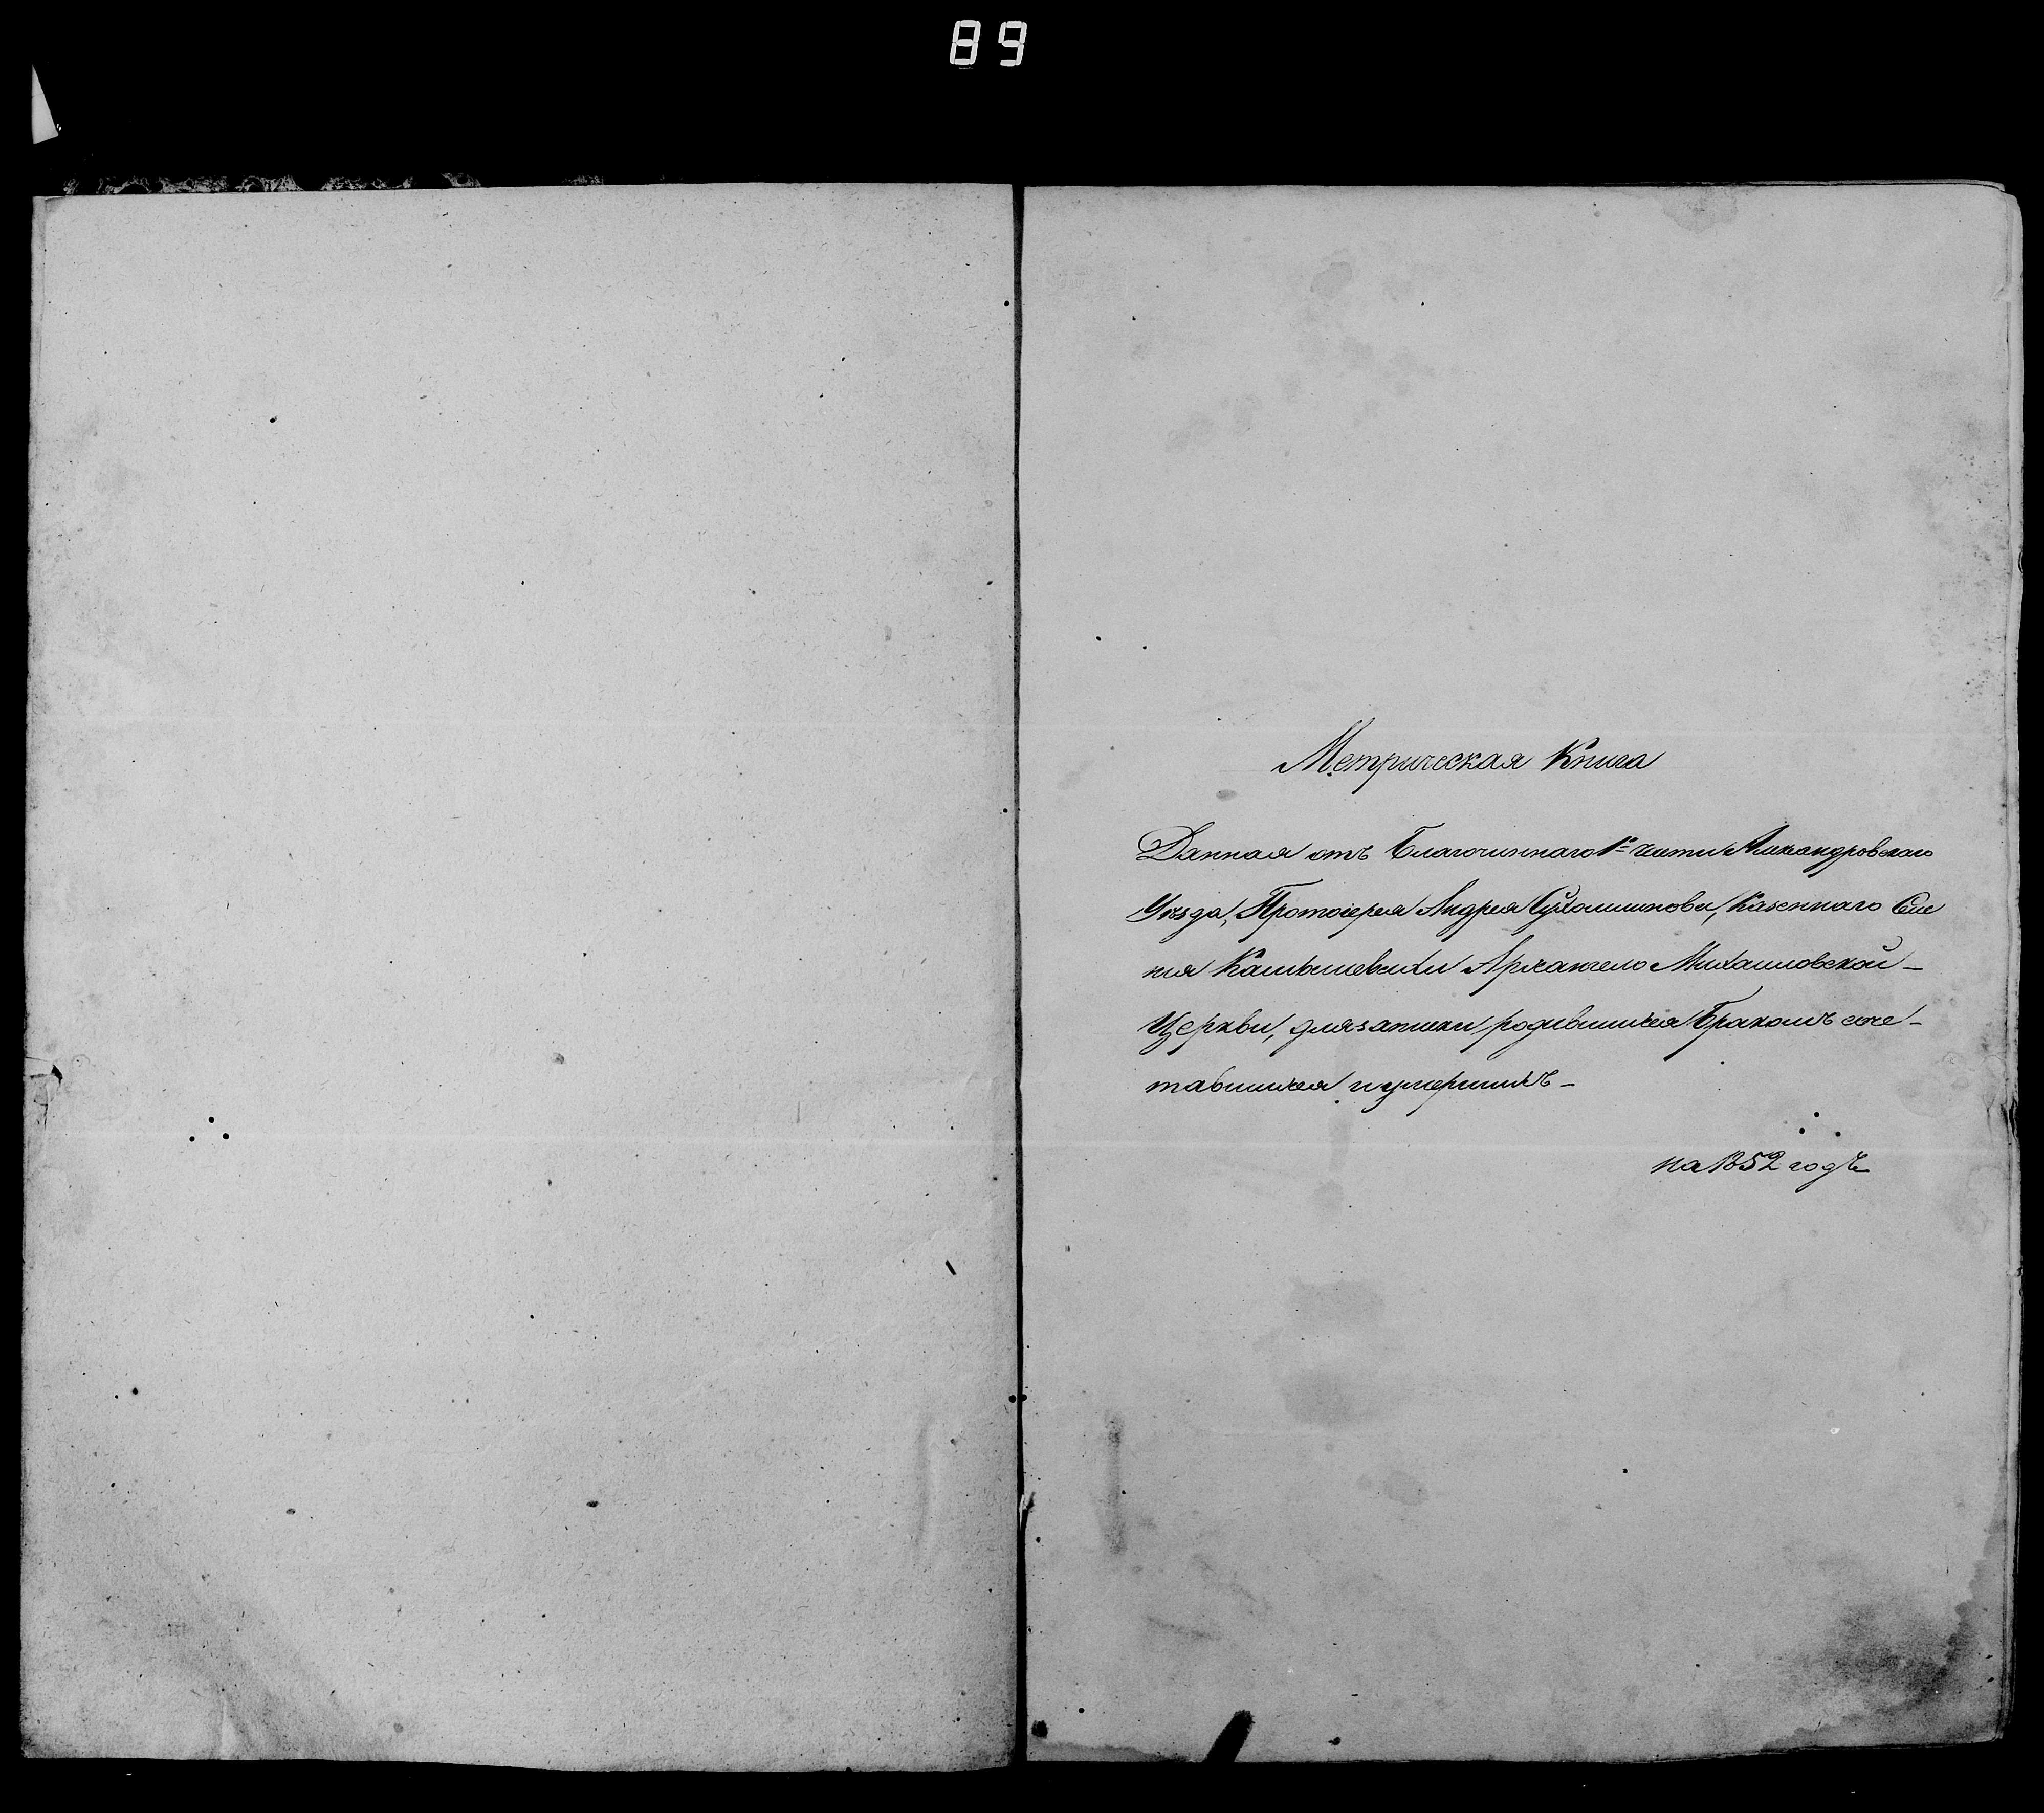 89
Метрическая Книга
Данная отъ Благочиннаго 1й части Александровскаго
Уѣзда, Протоіерея Андрея Сухомлинова, Казеннаго Селе
нія Камышевахи Архангело Михаиловской –
Церкви, для записки родившихся Бракомъ соче –
тавшихся и умершихъ –
на 1852 годъ